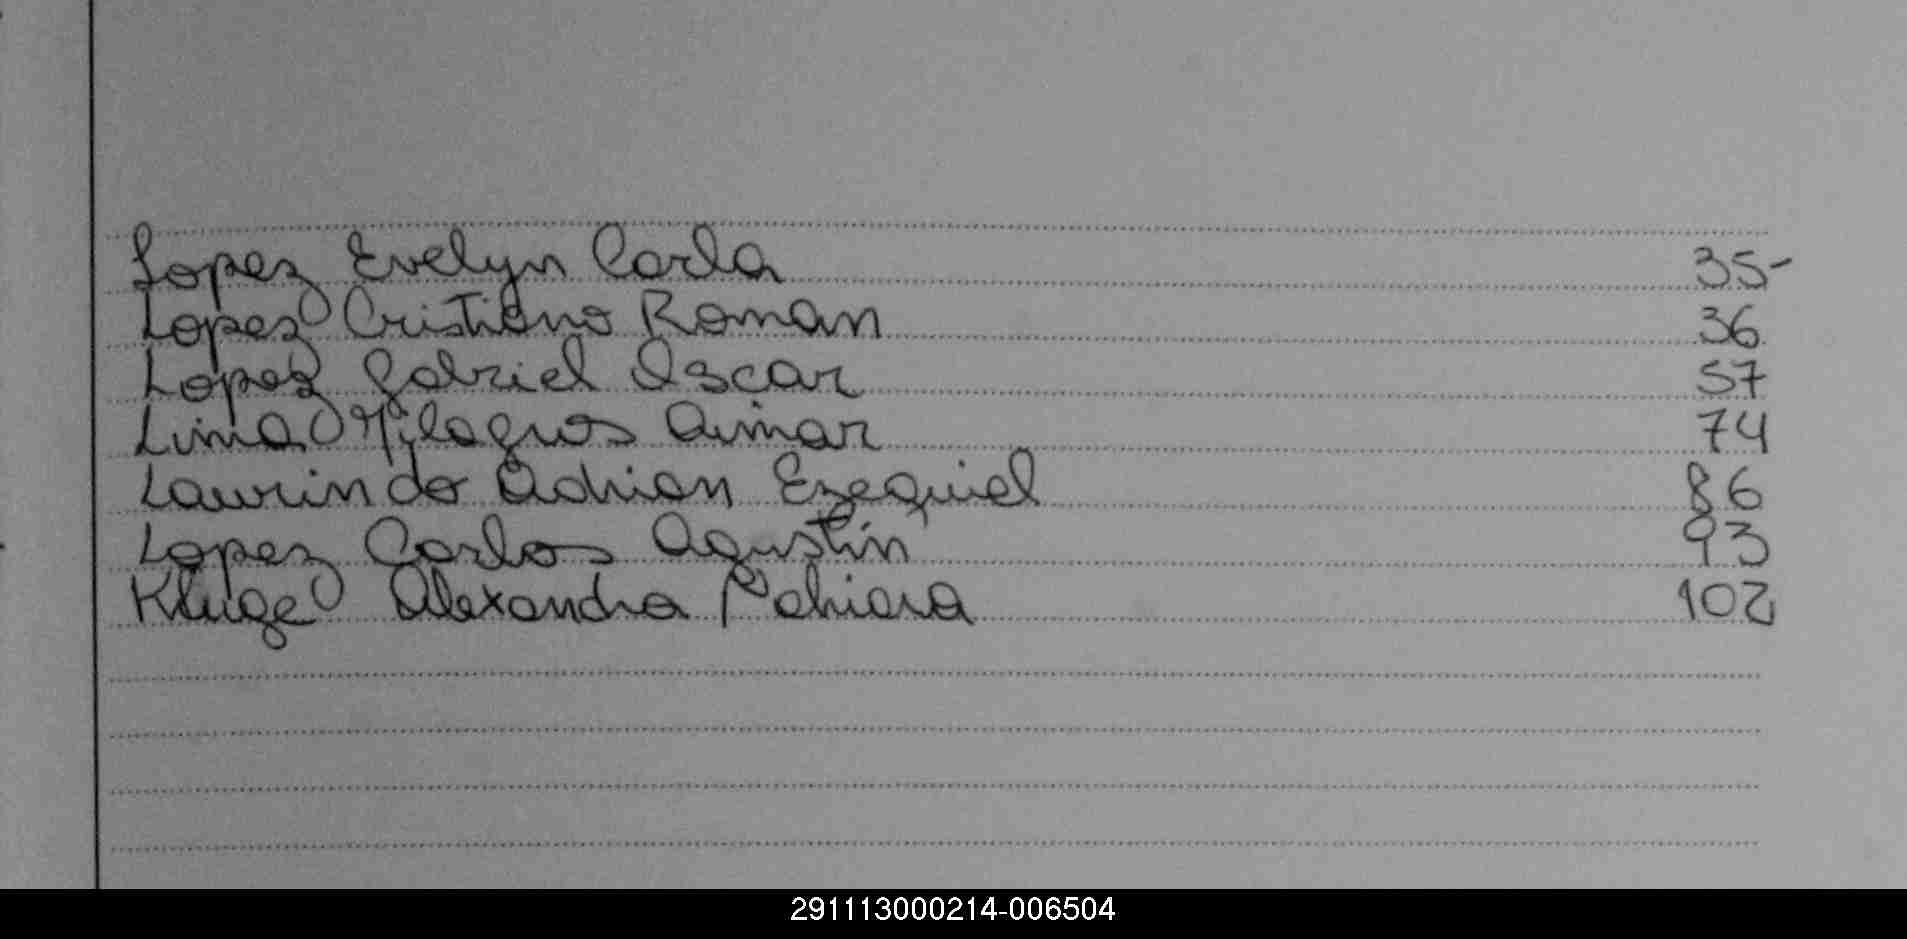 Lopez Evelyn Carla 35-
Lopez Cristiano Roman 36
Lopez Gabriel Oscar 57
Lima Milagros Aimar 74
Laurindo Adrian Ezequiel 86
Lopez Carlos Agustín 93
Kluge Alexandra 102
291113000214-006504